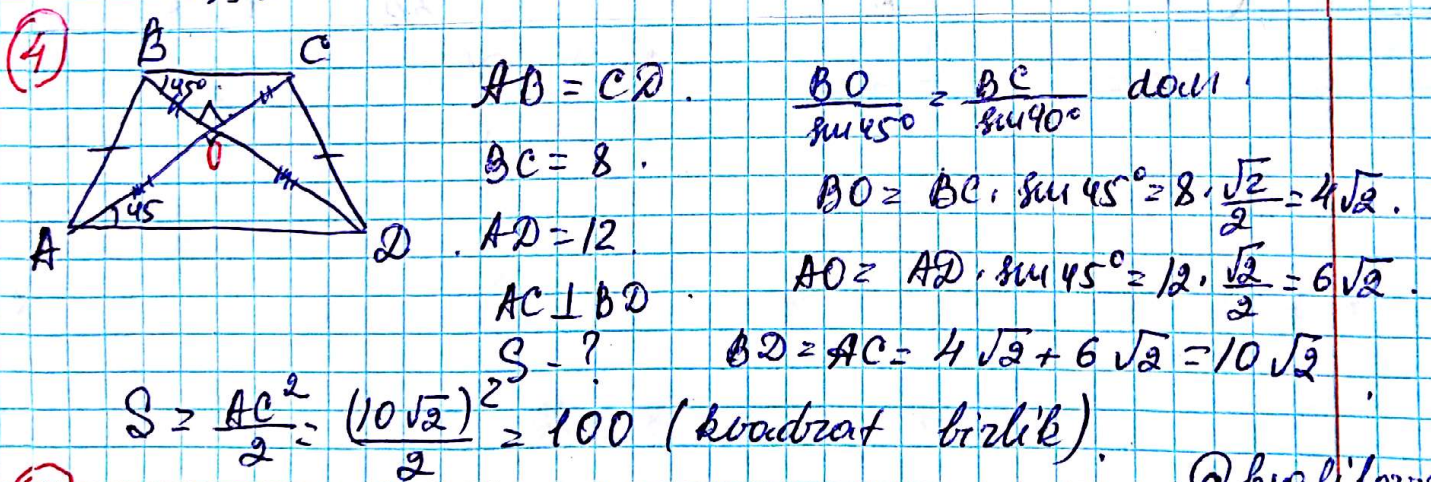 4
B C
45°
O
45
A D
AB = CD.
BC = 8.
AD = 12.
AC ⊥ BD.
S - ?
BO/sin45° = BC/sin90° dan.
BO = BC · sin45° = 8 · √2/2 = 4√2.
AO = AD · sin45° = 12 · √2/2 = 6√2.
BD = AC = 4√2 + 6√2 = 10√2.
S = AC²/2 = (10√2)²/2 = 100 (kvadrat birlik).